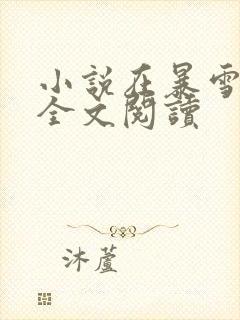 小說在暴雪
全文閱讀
沐蘆